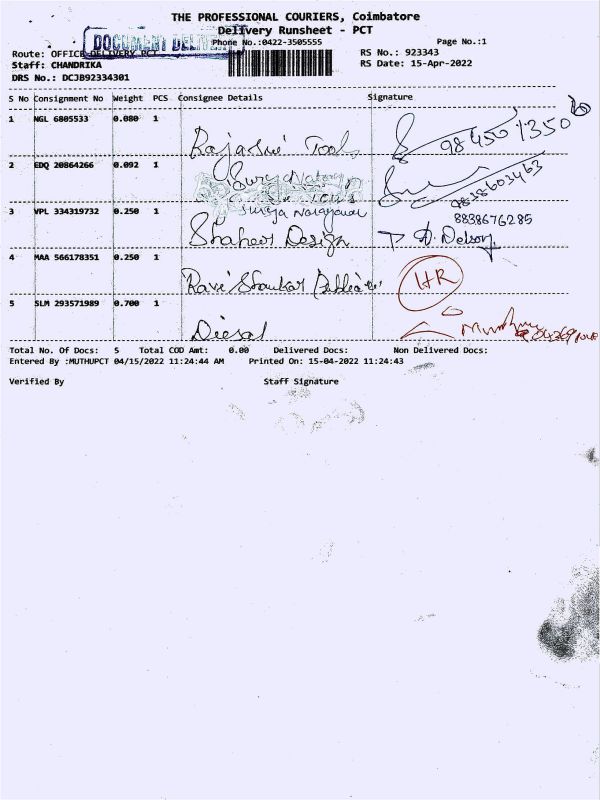 THE PROFESSIONAL COURIERS, Coimbatore
Delivery Runsheet - PCT
DOCUMENT
Phone No.:0422-3505555
Page No.:1
Route: OFFICE DELIVERY PCT
RS No.: 923343
Staff: CHANDRIKA
RS Date: 15-Apr-2022
DRS No.: DCJB92334301
S No Consignment No Weight PCS Consignee Details Signature
1 NGL 6805533 0.080 1
Rajasri Tools
2 EDQ 20864266 0.092 1
Surya Narayanan
8838676285
3 VPL 334319732 0.250 1
Shaheer Design
D. Delson
4 MAA 566178351 0.250 1
Ravi Shankar
HR
5 SLM 293571989 0.700 1
Diesal
Total No. Of Docs: 5 Total COD Amt: 0.00 Delivered Docs: Non Delivered Docs:
Entered By :MUTHUPCT 04/15/2022 11:24:44 AM Printed On: 15-04-2022 11:24:43
Verified By Staff Signature